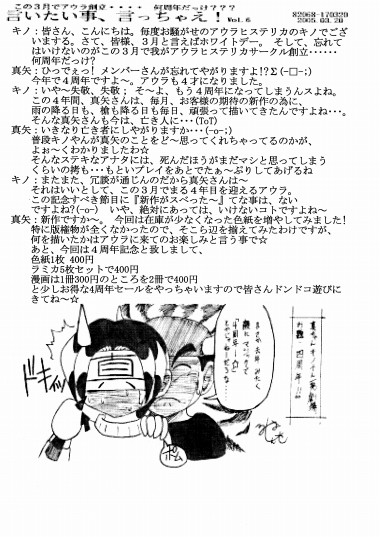 この３月でアウラ創立・・・・　何周年だっけ？？？
言いたい事、言っちゃえ！Vol.6
82068-170320
2005.03.20
キノ：皆さん、こんにちは。毎度お騒がせのアウラヒステリカのキノでござ
いまする。さて、皆様、３月と言えばホワイトデー。　そして、忘れて
はいけないのがこの３月で我がアウラヒステリカサークル創立・・・・・・
何周年だっけ？
真矢：ひってぇっ！メンバーさんが忘れてやがりますよ!?Σ(−□−;)
今年で４周年ですよ〜。アウラも４才になりました。
キノ：いや〜失敬、失敬；　そ〜よ、もう４周年になってしまうんスよね。
この４年間、真矢さんは、毎月、お客様の期待の新作の為に、
雨の降る日も、槍も降る日も毎日、頑張って描いてきたんですよね・・・。
そんな真矢さんも今は、亡き人に・・・(ToT)
真矢：いきなり亡き者にしやがりますか・・・(−o−;)
普段キノやんが真矢のことをど〜思ってくれちゃってるのかが、
よぉ〜くわかりましたわ☆
そんなステキなアナタには、死んだほうがまだマシと思ってしまう
くらいの拷も・・・もといプレイをあとでたぁ〜ぷりしてあげるね
キノ：またまた、冗談が通じんのだから真矢さんは〜
それはいいとして、この３月でまる４年目を迎えるアウラ。
この記念すべき節目に『新作がスベった〜』てな事は、ない
ですよね?(−o−)　いや、絶対にあっては、いけないコトですよね〜
真矢：新作ですか〜。　今回は在庫が少なくなった色紙を増やしてみました！
特に版権物が全くなかったので、そこら辺を揃えてみたわけですが、
何を描いたかはアウラに来てのお楽しみと言う事で☆
あと、今回は４周年記念と致しまして、
色紙1枚 400円
ラミカ5枚セットで400円
漫画は1冊300円のところを2冊で400円
と少しお得な4周年セールをやっちゃいますので皆さんドンドコ遊びに
きてね〜☆
ドキィッ